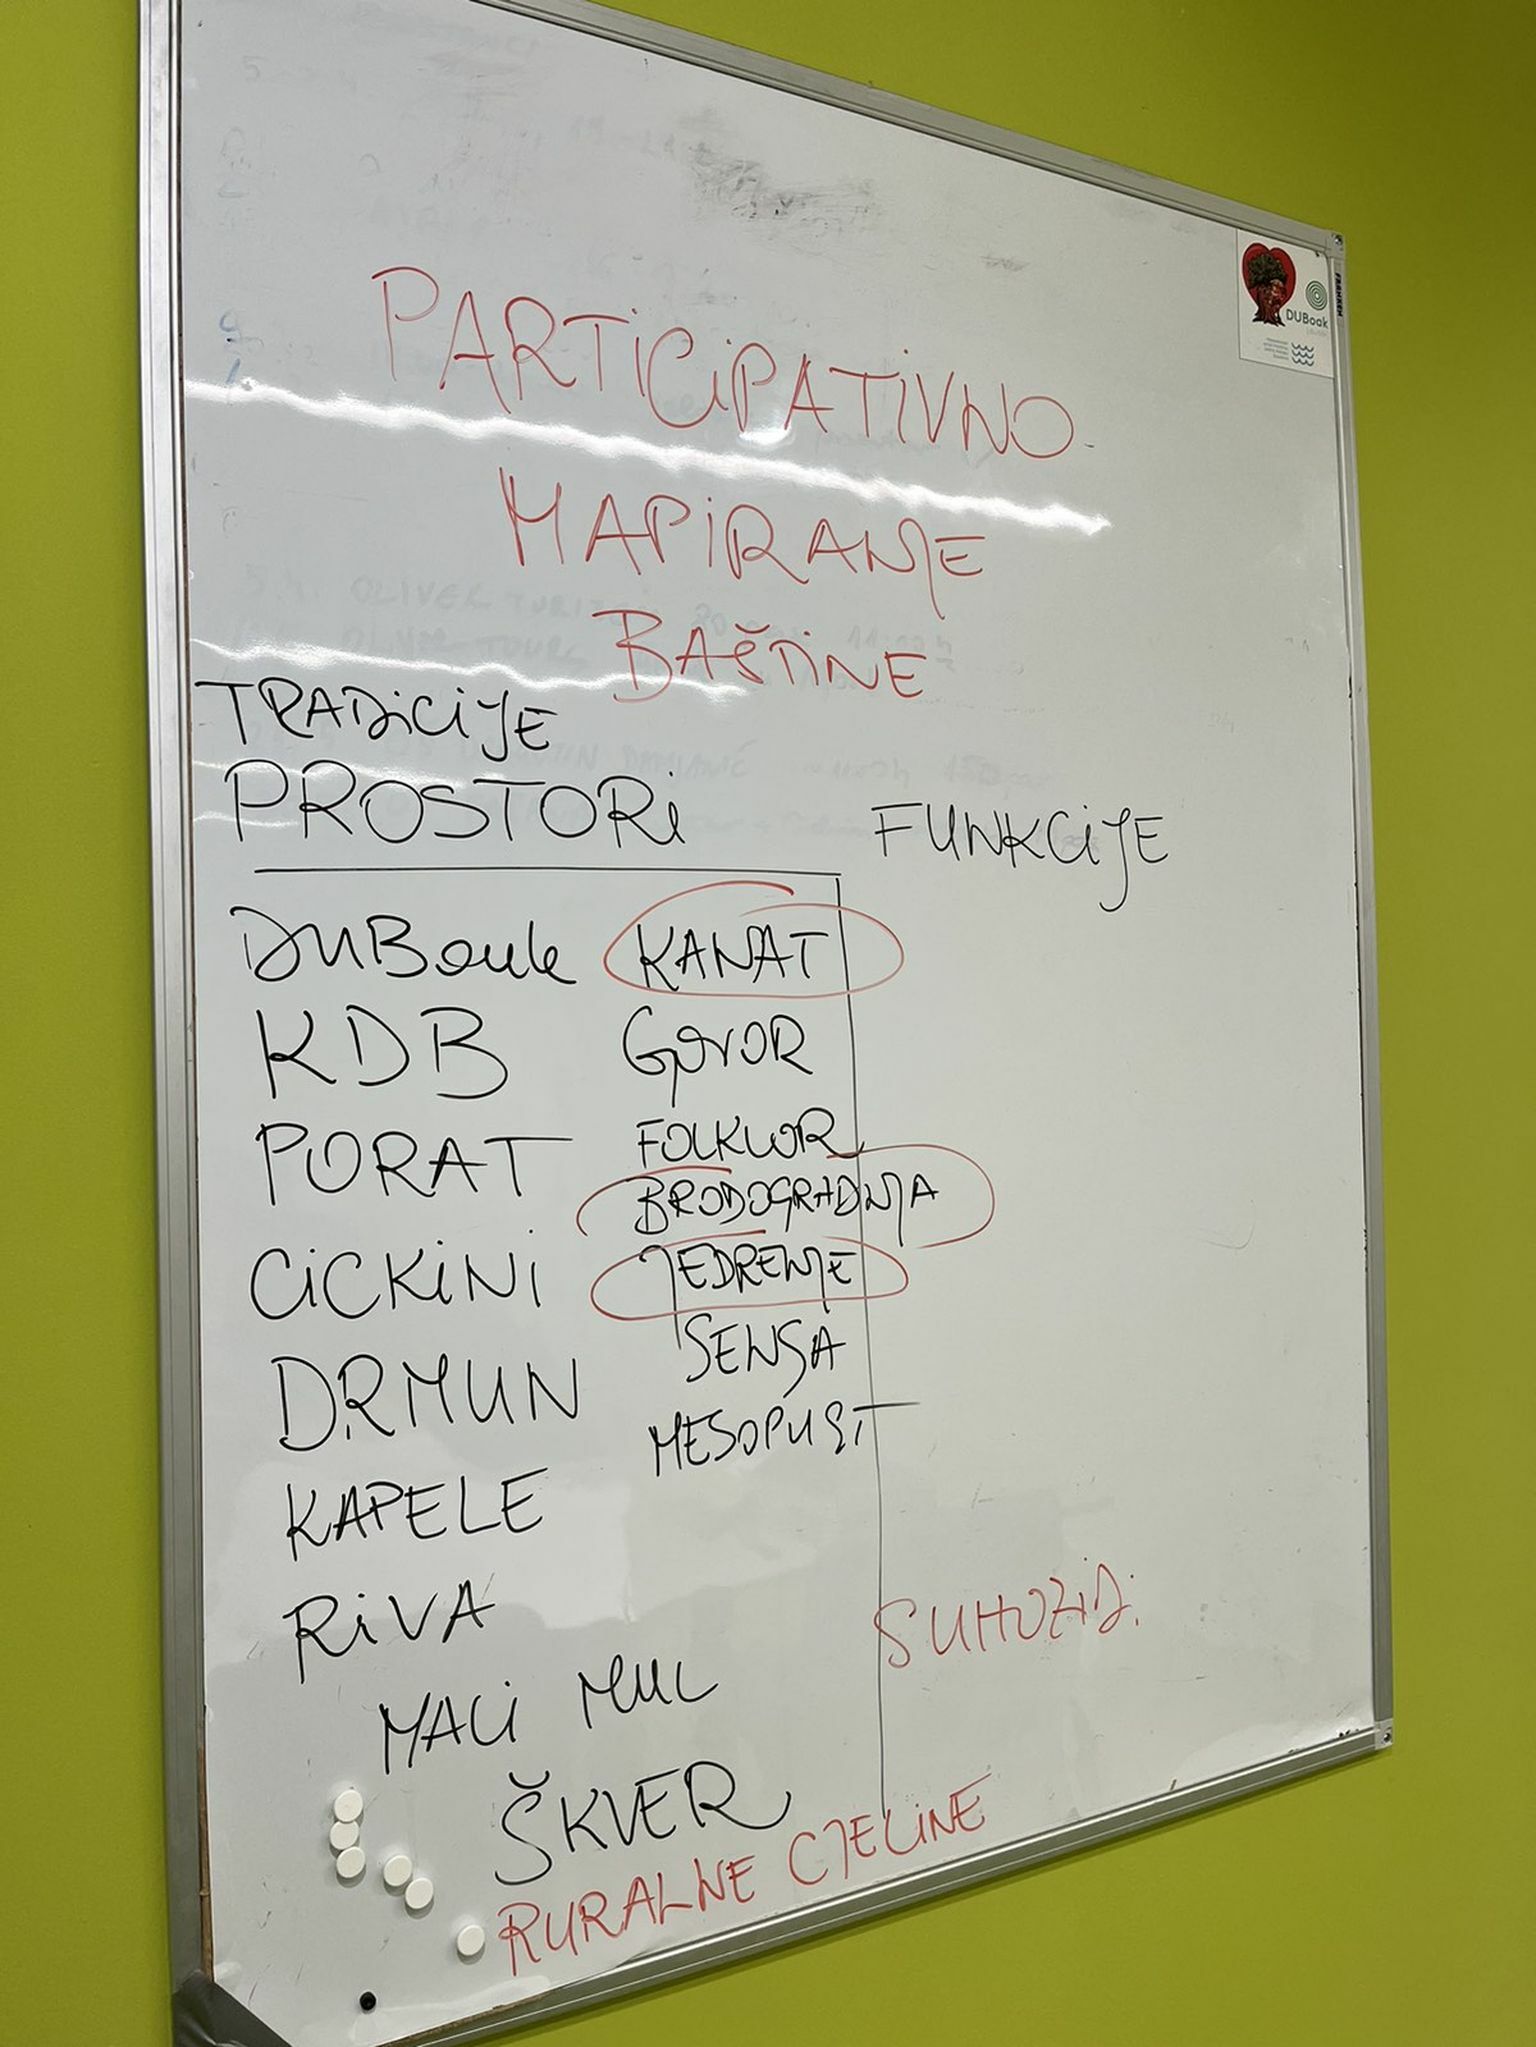 PARTICIPATIVNO
MAPIRANJE
BAŠTINE
TRADICIJE
PROSTORI
FUNKCIJE
DUBoak
KDB
PORAT
CICKINI
DRMUN
KAPELE
RIVA
MALI MUL
ŠKVER
RURALNE CJELINE
KANAT
GOVOR
FOLKLOR
BRODOGRADNJA
JEDRENJE
SENSA
MESOPUST
SUHOZIDI
DUBoak